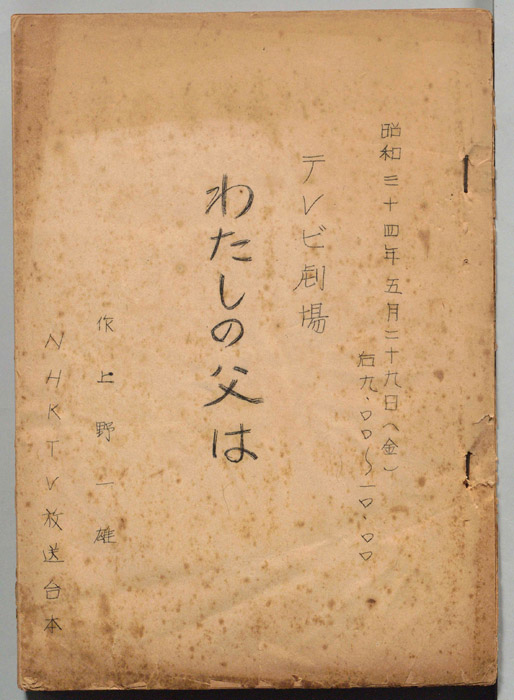 昭和三十四年五月二十九日(金)
后九.〇〇〜一〇.〇〇
テレビ劇場
わたしの父は
作 上野一雄
NHKTV放送台本